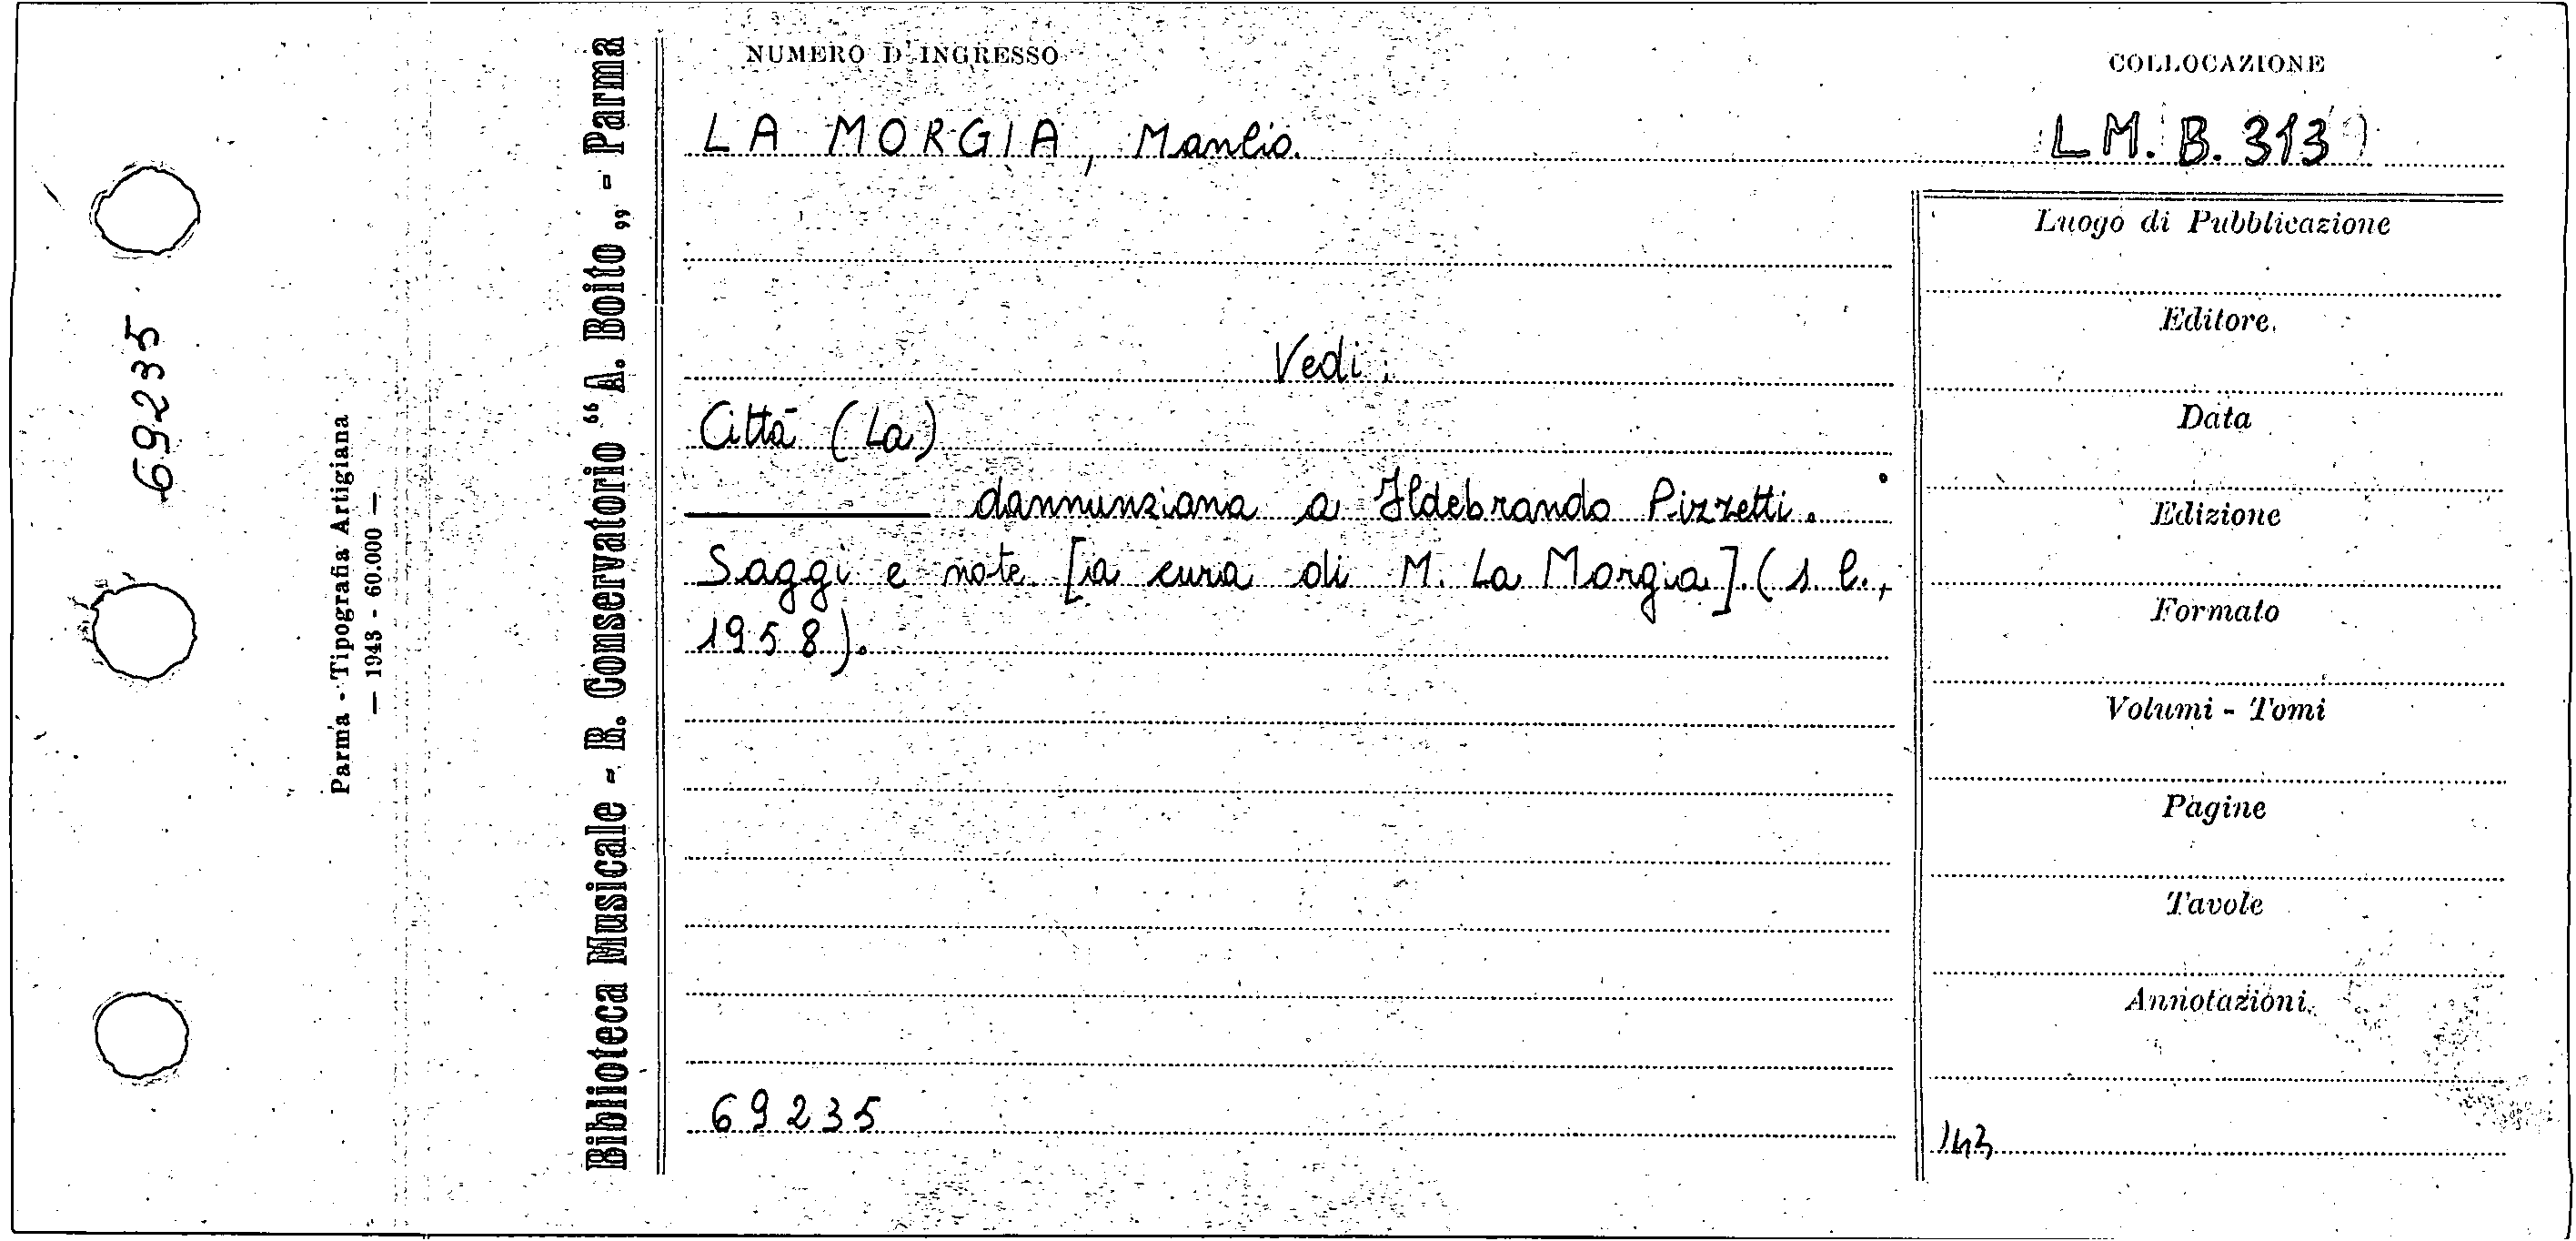 NUMERO D'INGRESSO
COLLOCAZIONE
LA MORGIA, Manlio.
LM. B. 313
Vedi:
Città (La)
dannunziana a Ildebrando Pizzetti.
Saggi e note [a cura di M. La Morgia]. (s.l.,
1958).
69235
Luogo di Pubblicazione
Editore
Data
Edizione
Formato
Volumi - Tomi
Pagine
Tavole
Annotazioni
Biblioteca Musicale - R. Conservatorio “A. Boito„ - Parma
Parma - Tipografia Artigiana
— 1948 - 60.000 —
69235